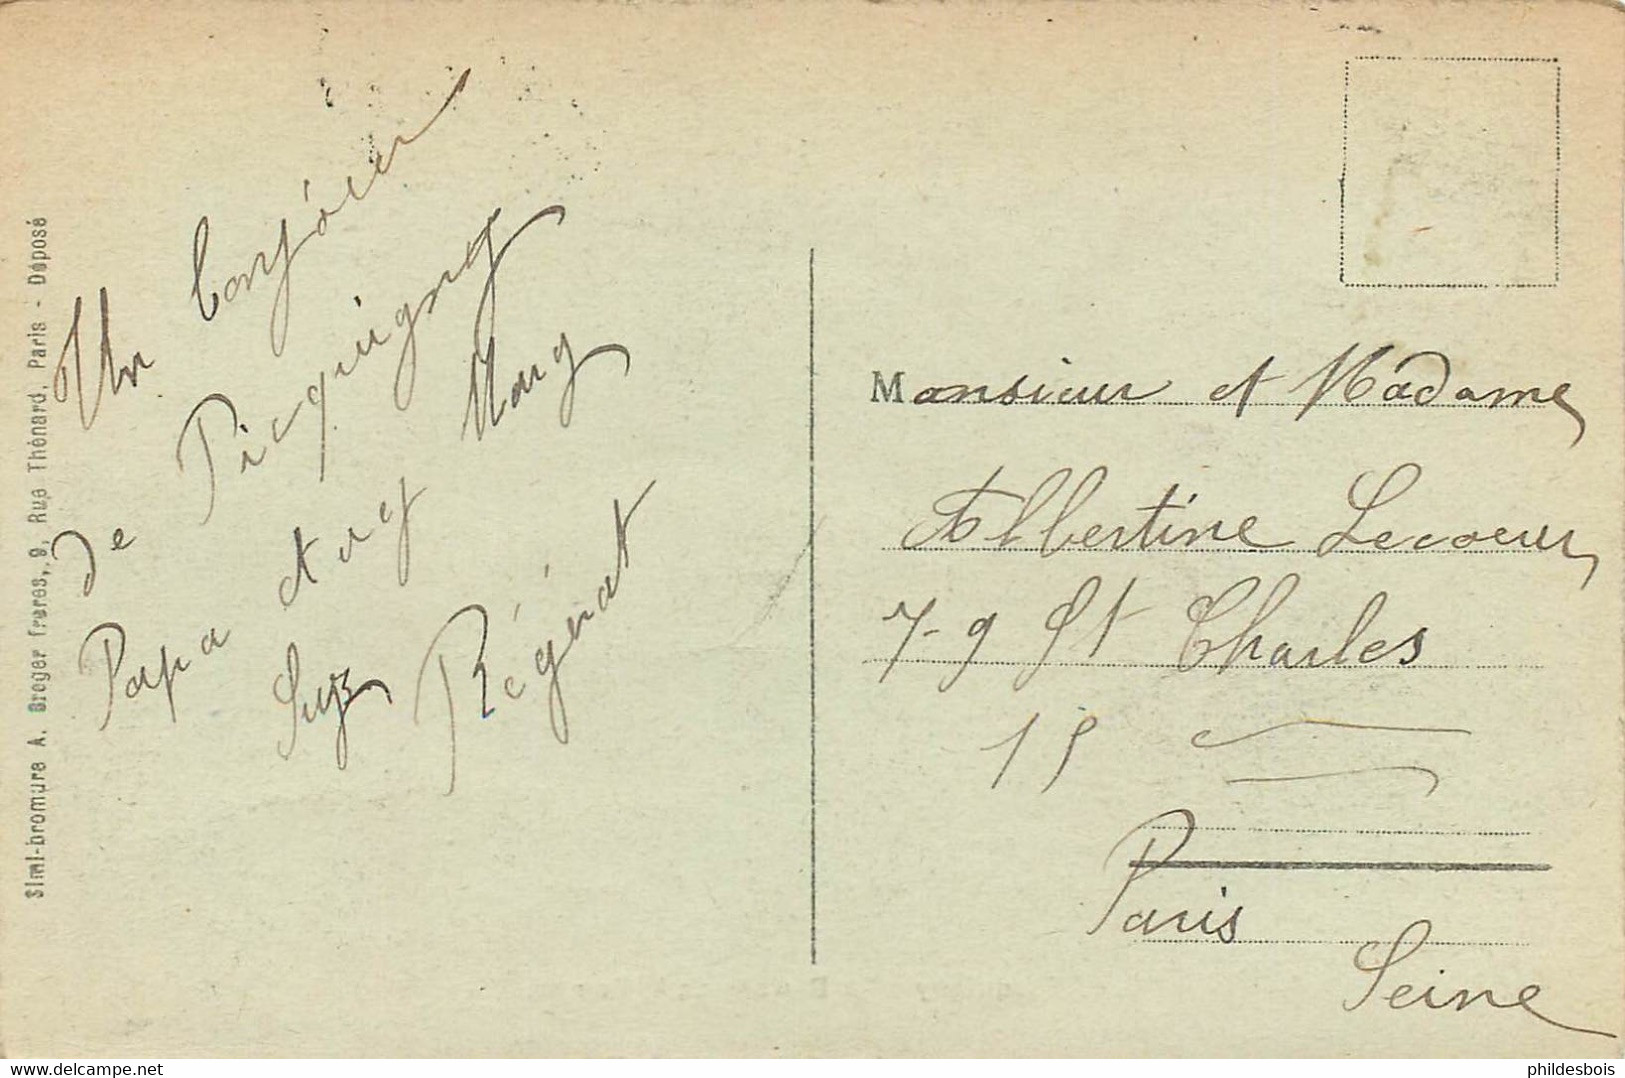 Simi-bromure A. Breger frères, 9, Rue Thénard, Paris - Déposé
Un bonjour
de Picquigny
Papa et
Suz Régnat
Monsieur et Madame
Albertine Lecoeur
7-9 St Charles
15
Paris
Seine
www.delcampe.net
phildesbois